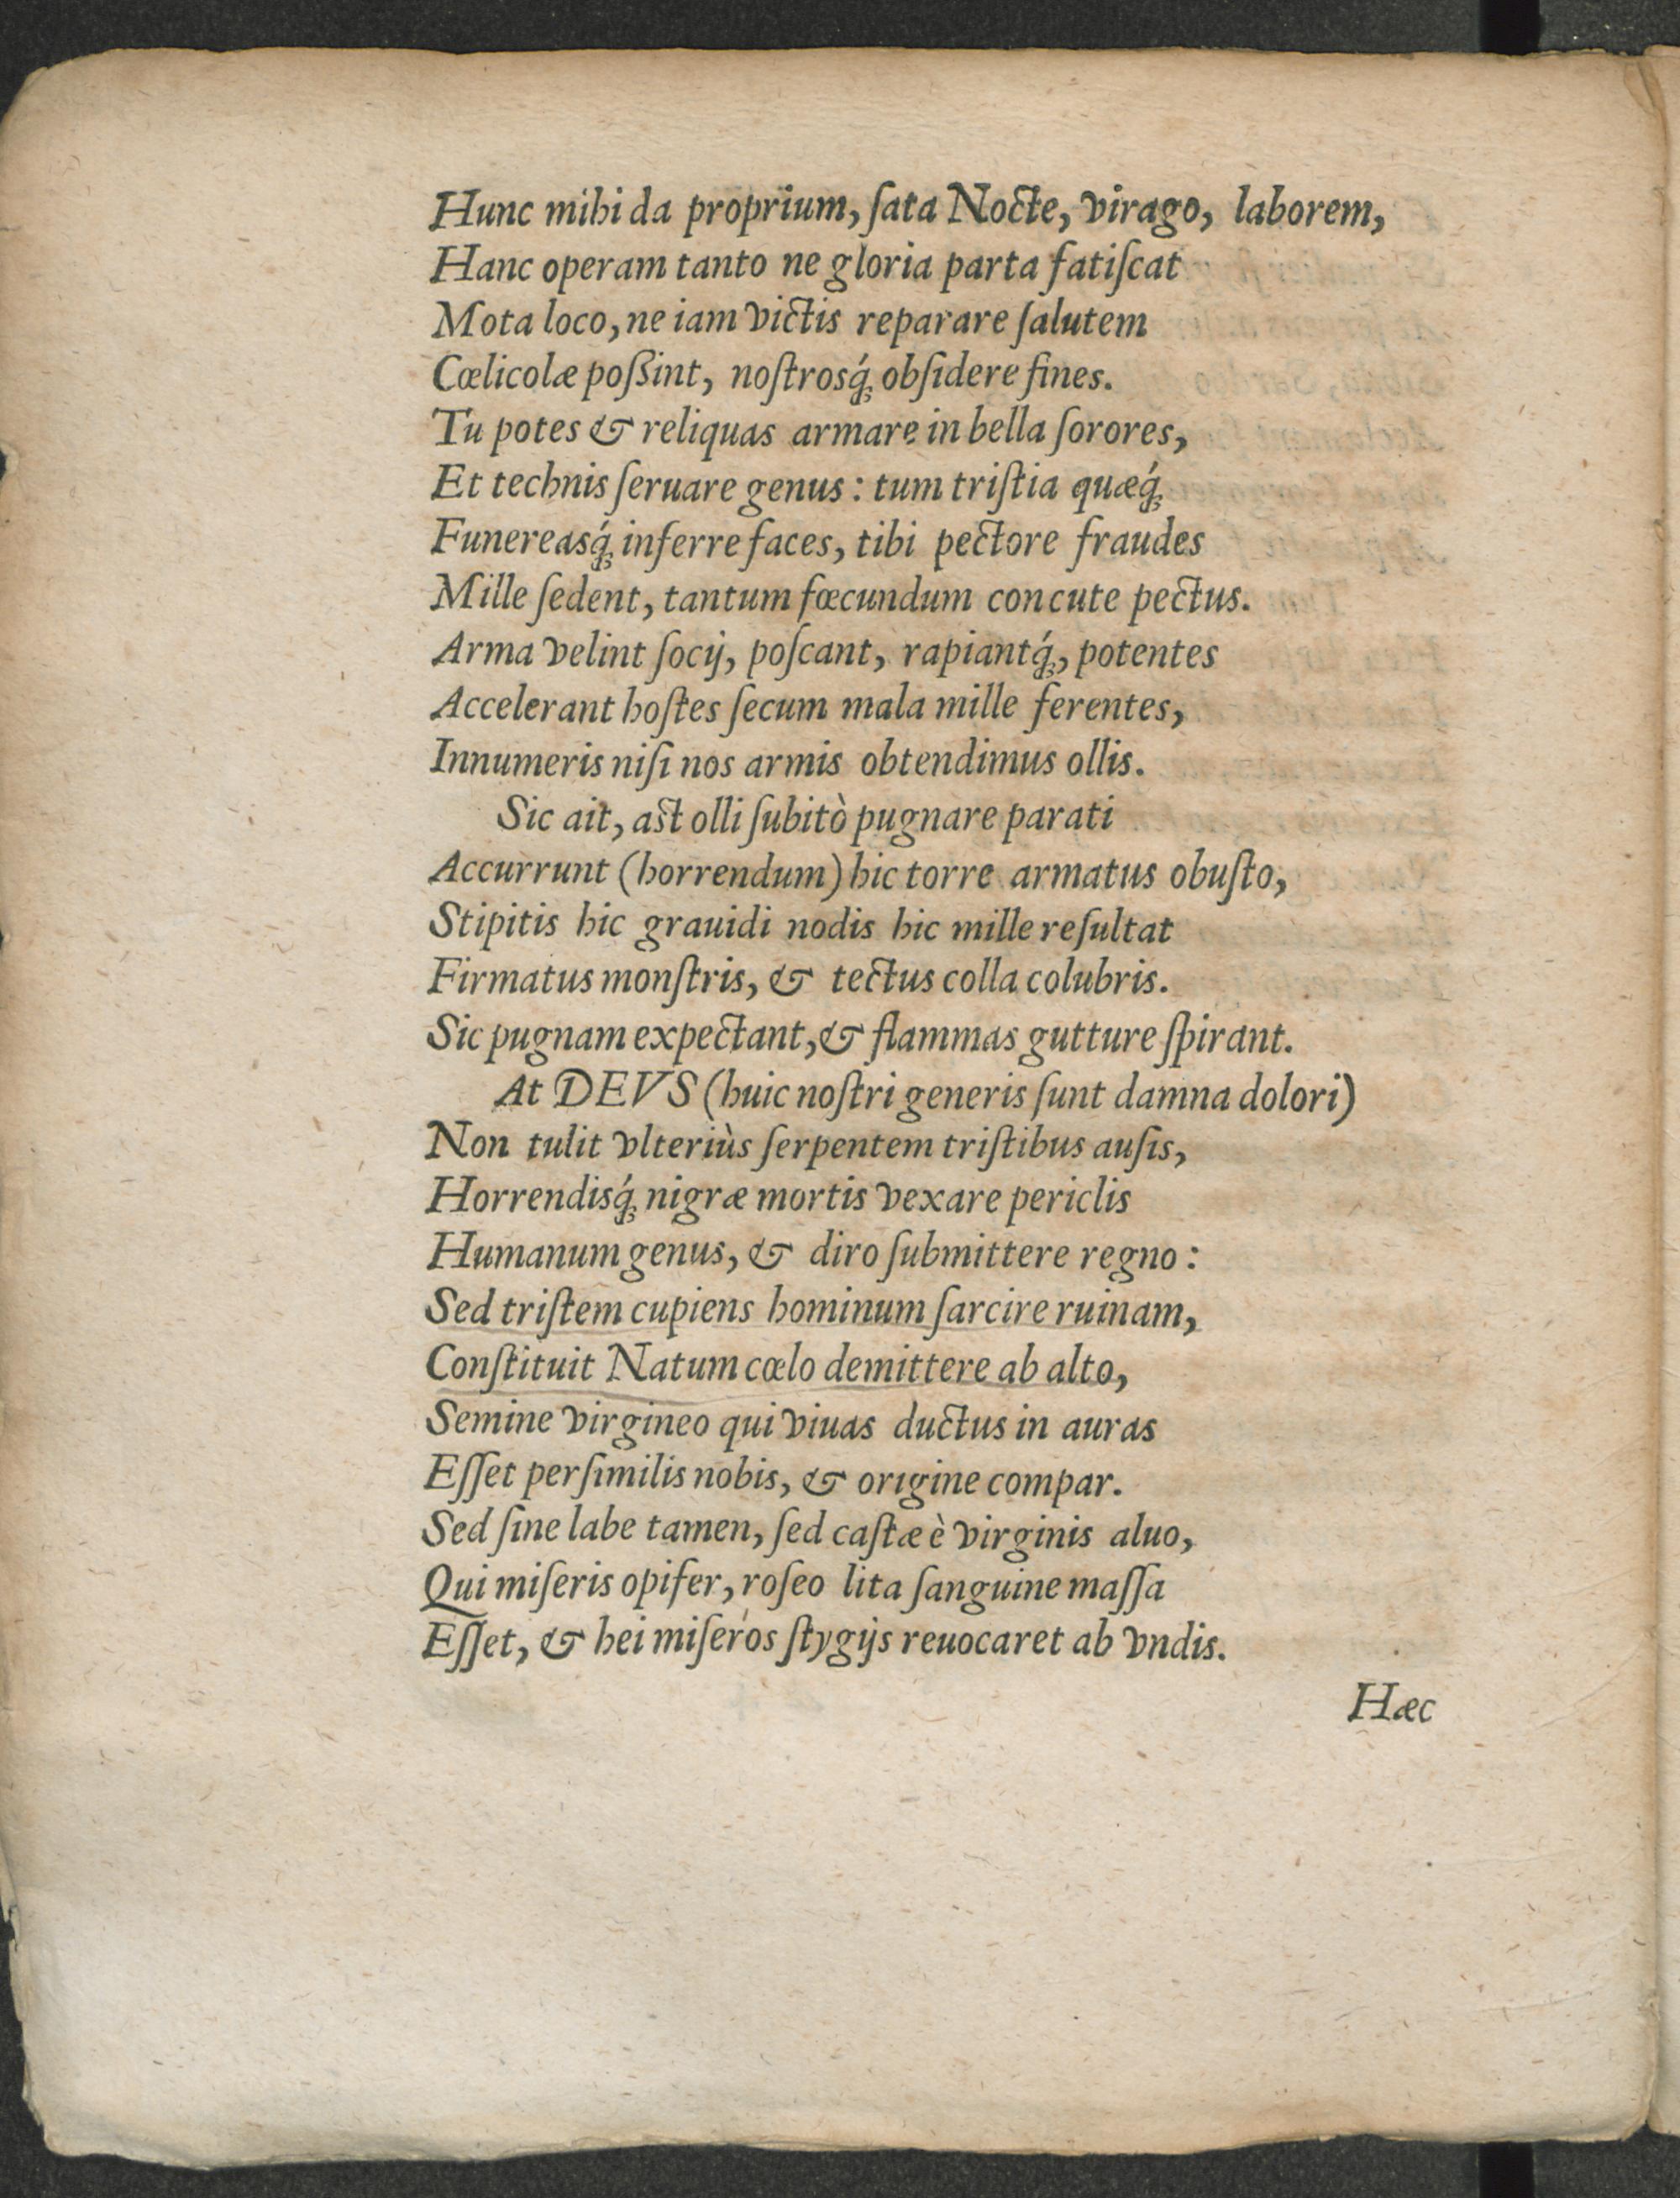 Hunc mihi da proprium, ſata Nocte, virago, laborem,
Hanc operam tanto ne gloria parta fatiſcat
Mota loco, ne iam victis reparare ſalutem
Cœlicolæ poßint, noſtrosq́; obſidere fines.
Tu potes & reliquas armare in bella ſorores,
Et technis ſeruare genus: tum triſtia quæq́;
Funereasq́; inferre faces, tibi pectore fraudes
Mille ſedent, tantum fœcundum concute pectus.
Arma velint ſocij, poſcant, rapiantq́;, potentes
Accelerant hoſtes ſecum mala mille ferentes,
Innumeris niſi nos armis obtendimus ollis.
Sic ait, ast olli ſubitò pugnare parati
Accurrunt (horrendum) hic torre armatus obuſto,
Stipitis hic grauidi nodis hic mille reſultat
Firmatus monſtris, & tectus colla colubris.
Sic pugnam expectant, & flammas gutture ſpirant.
At DEVS (huic noſtri generis ſunt damna dolori)
Non tulit vlteriùs ſerpentem triſtibus auſis,
Horrendisq́; nigræ mortis vexare periclis
Humanum genus, & diro ſubmittere regno:
Sed triſtem cupiens hominum ſarcire ruinam,
Conſtituit Natum cœlo demittere ab alto,
Semine virgineo qui viuas ductus in auras
Eſſet perſimilis nobis, & origine compar.
Sed ſine labe tamen, ſed caſtæ è virginis aluo,
Qui miſeris opifer, roſeo lita ſanguine maſſa
Eſſet, & hei miſeros ſtygijs reuocaret ab vndis.
Hæc